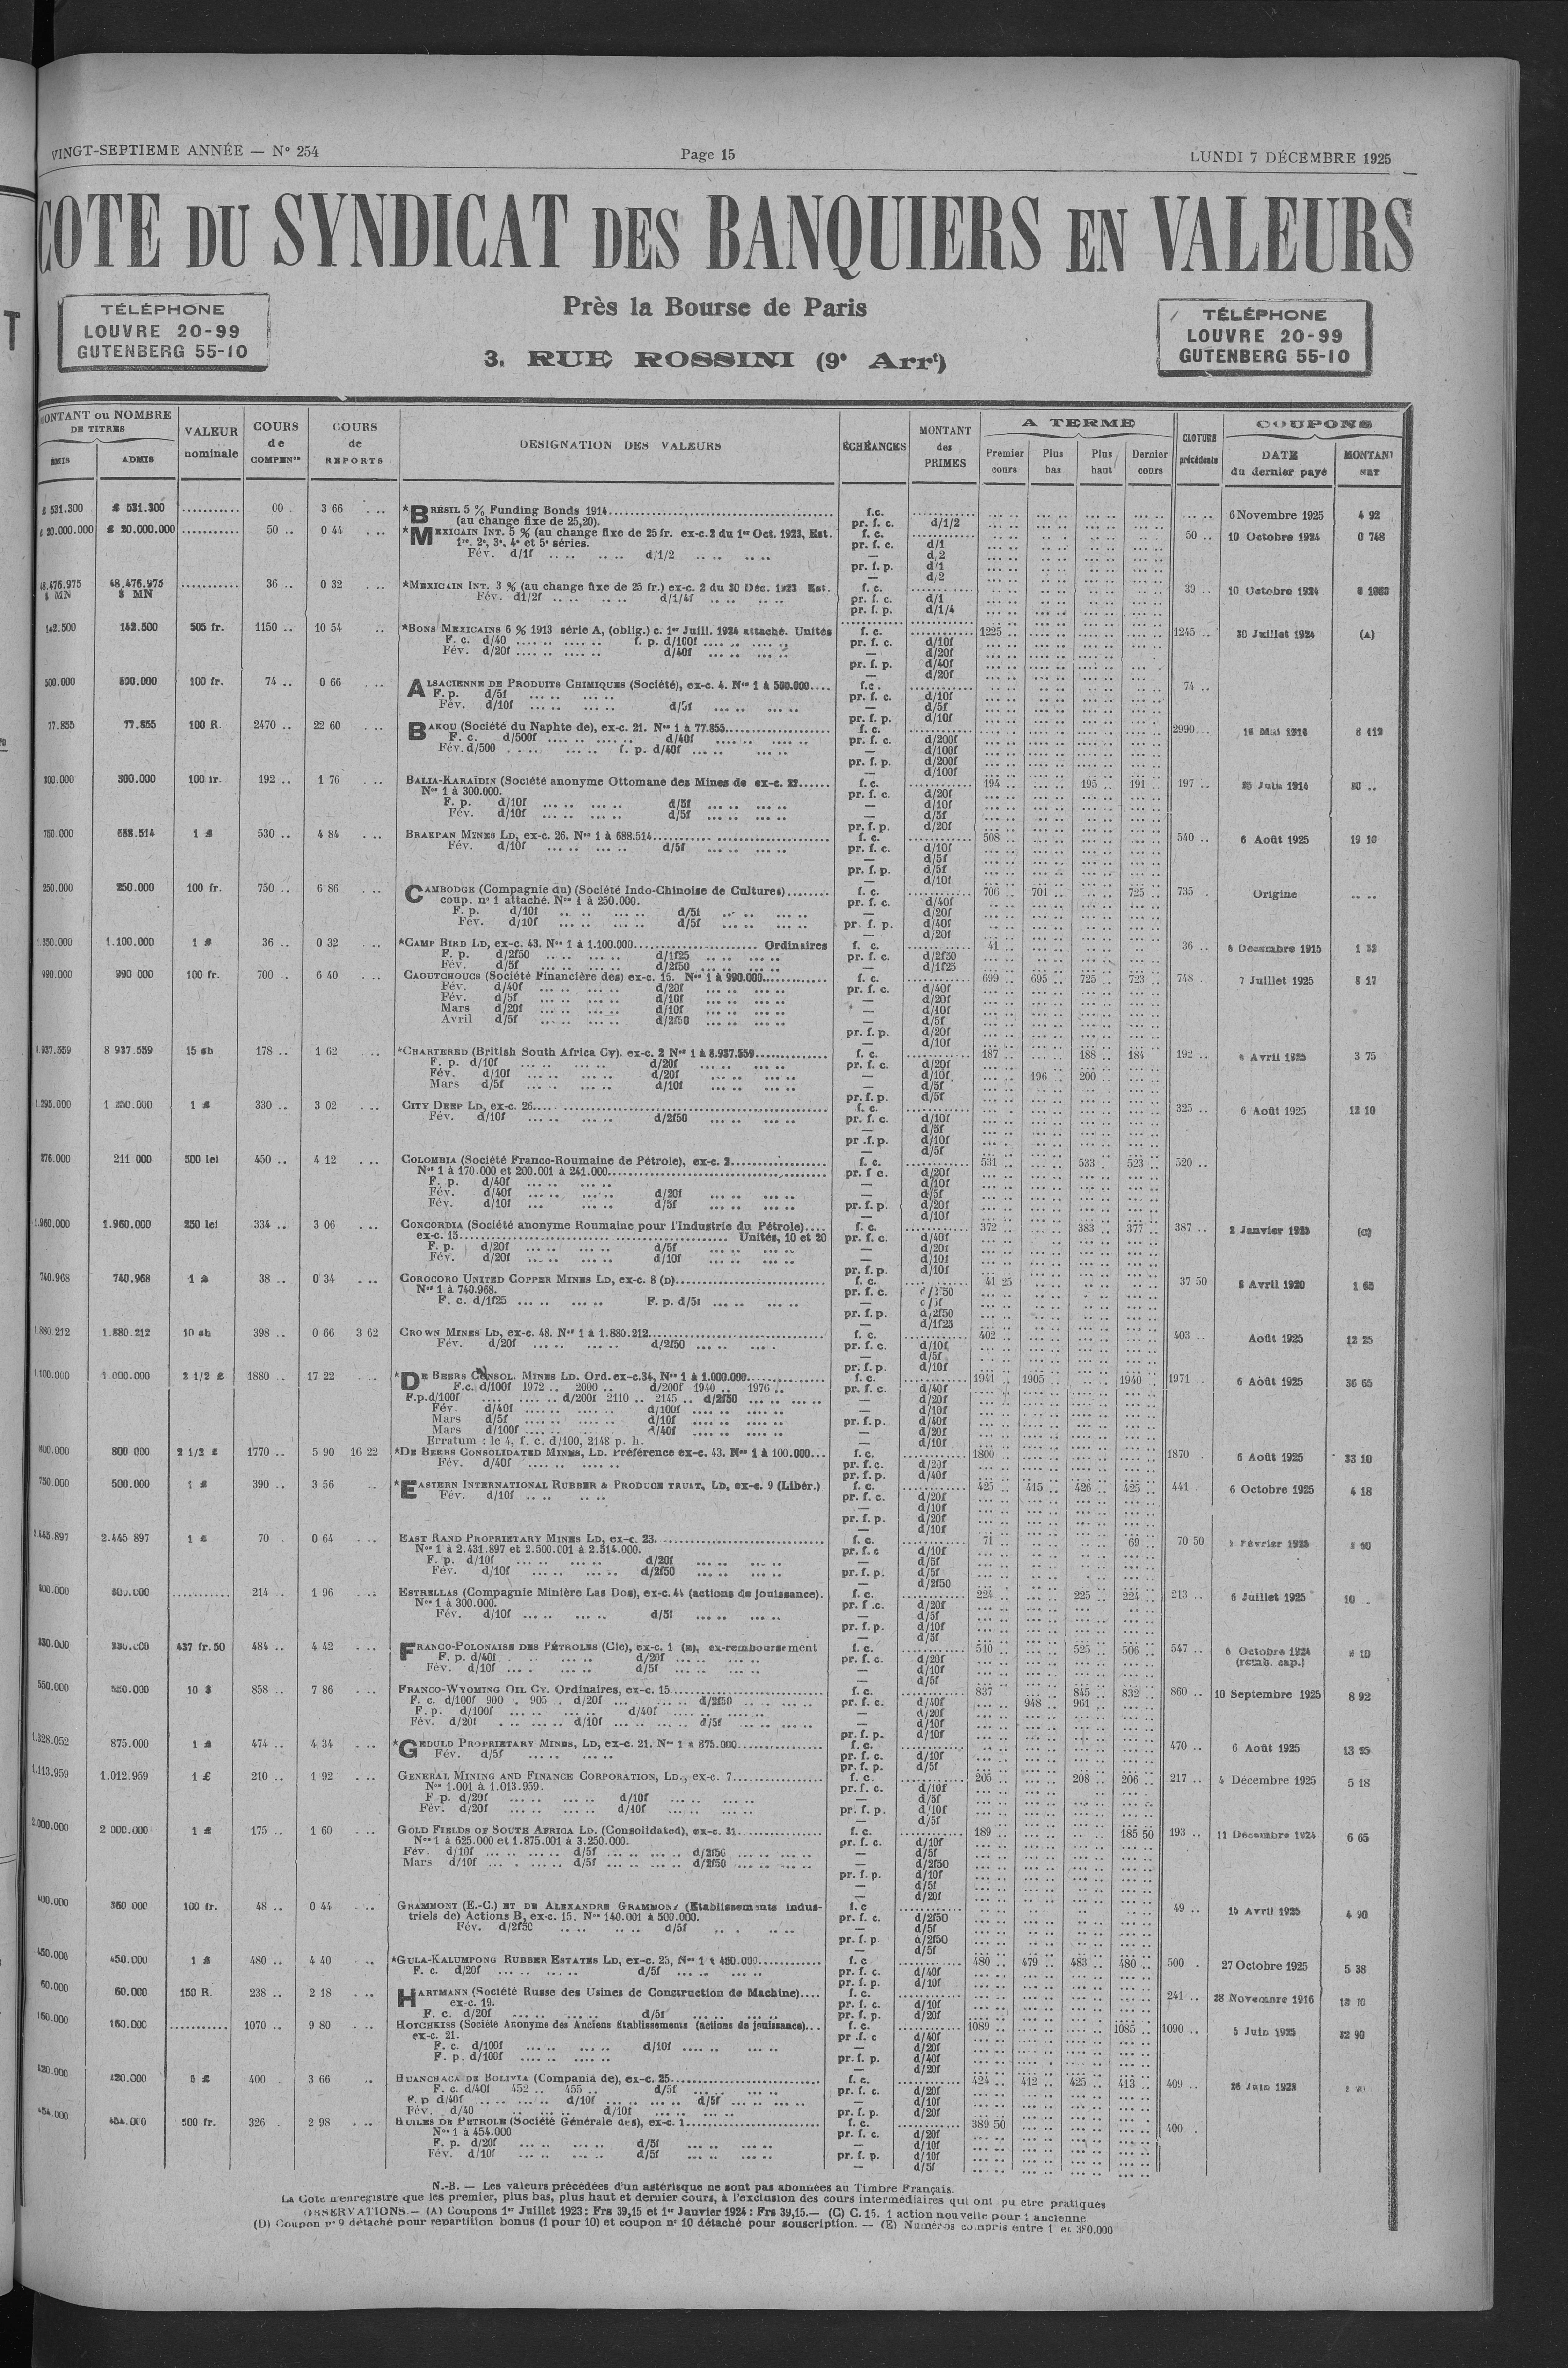 VINGT-SEPTIEME ANNÉE — N° 254
Page 15
LUNDI 7 DÉCEMBRE 1925
COTE DU SYNDICAT DES BANQUIERS EN VALEURS
TÉLÉPHONE
LOUVRE 20-99
GUTENBERG 55-10
Près la Bourse de Paris
3, RUE ROSSINI (9e Arrt)
TÉLÉPHONE
LOUVRE 20-99
GUTENBERG 55-10
MONTANT ou NOMBRE DE TITRES
ÉMIS ADMIS
VALEUR nominale
COURS de COMPENon
COURS de REPORTS
DESIGNATION DES VALEURS
ÉCHÉANCES
MONTANT des PRIMES
A TERME
Premier cours Plus bas Plus haut Dernier cours
CLOTURE précédente
COUPONS
DATE du dernier payé
MONTANT NET
£ 531.300 £ 531.300 3 66 *BRÉSIL 5 % Funding Bonds 1914 f.c. 6 Novembre 1925 4 92
(au change fixe de 25,20). pr. f. c. d/1/2
£ 20.000.000 £ 20.000.000 50 .. 0 44 *MEXICAIN INT. 5 % (au change fixe de 25 fr. ex-c.2 du 1er Oct. 1923, Est. f. c. 50 .. 10 Octobre 1924 0 748
1re, 2e, 3e, 4e et 5e séries. pr. f. c. d/1
Fév. d/1f d/1/2
48.476.975 $ MN 48.476.975 $ MN 36 .. 0 32 *MEXICAIN INT. 3 % (au change fixe de 25 fr.) ex-c. 2 du 30 Déc. 1923 Est. f. c. 39 .. 10 Octobre 1924
Fév. d1/2f d/1/4f pr. f. c. d/1
pr. f. p. d/1/4
142.500 142.500 505 fr. 1150 .. 10 54 *BONS MEXICAINS 6 % 1913 série A, (oblig.) c. 1er Juill. 1924 attaché. Unités f. c. 1225 .. 1245 .. 30 Juillet 1924 (A)
F. c. d/40 f. p. d/100f pr. f. c. d/10f
Fév. d/20f d/40f d/20f
pr. f. p. d/40f
d/20f
500.000 500.000 100 fr. 74 .. 0 66 ALSACIENNE DE PRODUITS CHIMIQUES (Société), ex-c. 4. Nos 1 à 500.000 f.c. 74 ..
F. p. d/5f pr. f. c. d/10f
Fév. d/10f d/5f — d/5f
pr. f. p. d/10f
77.855 77.855 100 R. 2470 .. 22 60 BAKOU (Société du Naphte de), ex-c. 21. Nos 1 à 77.855 f. c. 2990
F. c. d/500f d/40f pr. f. c. d/200f
Fév. d/500 f. p. d/40f — d/100f
pr. f. p. d/200f
— d/100f
300.000 300.000 100 fr. 192 .. 1 76 BALIA-KARAÏDIN (Société anonyme Ottomane des Mines de ex-c. 22 f. c. 194 .. 195 .. 191 .. 197 .. 25 Juin 1914
Nos 1 à 300.000. pr. f. c. d/20f
F. p. d/10f d/5f — d/10f
Fév. d/10f d/5f — d/5f
pr. f. p. d/20f
750.000 688.514 1 £ 530 .. 4 84 BRAKPAN MINES LD, ex-c. 26. Nos 1 à 688.514 f. c. 508 .. 540 .. 6 Août 1925 19 10
Fév. d/10f d/5f pr. f. c. d/10f
— d/5f
pr. f. p. d/5f
— d/10f
250.000 250.000 100 fr. 750 .. 6 86 CAMBODGE (Compagnie du) (Société Indo-Chinoise de Cultures) f. c. 706 .. 701 .. 725 .. 735 . Origine
coup. n° 1 attaché. Nos 1 à 250.000. pr. f. c. d/40f
F. p. d/10f d/5f — d/20f
Fév. d/10f d/5f pr. f. p. d/40f
— d/20f
1.350.000 1.100.000 1 £ 36 .. 0 32 *CAMP BIRD LD, ex-c. 43. Nos 1 à 1.100.000 Ordinaires f. c. 41 .. 36 .. 6 Décembre 1915
F. p. d/2f50 d/1f25 pr. f. c. d/2f50
Fév. d/5f d/2f50 — d/1f25
990.000 990 000 100 fr. 700 .. 6 40 CAOUTCHOUCS (Société Financière des) ex-c. 15. Nos 1 à 990.000 f. c. 699 .. 695 .. 725 .. 723 .. 748 .. 7 Juillet 1925 8 17
Fév. d/40f d/20f pr. f. c. d/40f
Fév. d/5f d/10f — d/20f
Mars d/20f d/10f — d/10f
Avril d/5f d/2f50 — d/5f
pr. f. p. d/20f
— d/10f
8 937.559 15 sh 178 .. 1 62 *CHARTERED (British South Africa Cy). ex-c. 2 Nos 1 à 8.937.559 f. c. 187 .. 188 .. 184 .. 192 .. Avril 1925 3 75
F. p. d/10f d/20f pr. f. c. d/20f
Fév. d/10f d/20f — d/10f 196 .. 200 ..
Mars d/5f d/10f — d/5f
pr. f. p. d/5f
1 £ 330 .. 3 02 CITY DEEP LD, ex-c. 26 f. c. 325 .. 6 Août 1925 12 10
Fév. d/10f d/2f50 pr. f. c. d/10f
— d/5f
pr .f. p. d/10f
— d/5f
276.000 211 000 500 lei 450 .. 4 12 COLOMBIA (Société Franco-Roumaine de Pétrole), ex-c. 2 f. c. 531 .. 533 . 523 .. 520 ..
Nos 1 à 170.000 et 200.001 à 241.000 pr. f c. d/20f
F. p. d/40f — d/10f
Fév. d/40f d/20f — d/5f
Fév. d/10f d/5f pr. f. p. d/20f
— d/10f
1.960.000 1.960.000 250 lei 334 .. 3 06 CONCORDIA (Société anonyme Roumaine pour l'Industrie du Pétrole) f. c. 372 .. 383 .. 377 .. 387 .. 2 Janvier 1923 (C)
ex-c. 15 Unités, 10 et 20 pr. f. c. d/40f
F. p. d/20f d/5f — d/20f
Fév. d/20f d/10f — d/10f
pr. f. p. d/10f
740.968 740.968 1 £ 38 .. 0 34 COROCORO UNITED COPPER MINES LD, ex-c. 8 (D) f. c. 41 25 37 50 8 Avril 1920
Nos 1 à 740.968. pr. f. c. d/2f50
F. c. d/1f25 F. p. d/5f — d/5f
pr. f. p. d/2f50
— d/1f25
1.880.212 1.880.212 10 sh 398 .. 0 66 3 62 CROWN MINES LD, ex-c. 48. Nos 1 à 1.880.212 f. c. 402 .. 403 .. Août 1925 12 25
Fév. d/20f d/2f50 pr. f. c. d/10f
— d/5f
pr. f. p. d/10f
1.100.000 1.000.000 2 1/2 £ 1880 .. 17 22 *DE BEERS CONSOL. MINES LD. Ord. ex-c.34, Nos 1 à 1.000.000 f. c. 1941 .. 1905 .. 1940 .. 1971 .. 6 Août 1925 36 65
F.c. d/100f 1972 .. 2000 .. d/200f 1940 .. 1976 .. pr. f. c. d/40f
F.p.d/100f d/200f 2110 .. 2145 .. d/2f50 — d/20f
Fév. d/40f d/100f — d/10f
Mars d/5f d/10f pr. f. p. d/40f
Mars d/100f d/40f — d/20f
Erratum : le 4, f. c. d/100, 2148 p. h. — d/10f
800.000 800 000 2 1/2 £ 1770 .. 5 90 16 22 *DE BEERS CONSOLIDATED MINES, LD. Préférence ex-c. 43. Nos 1 à 100.000 f. c. 1800 .. 1870 .. 6 Août 1925 33 10
Fév. d/40f pr. f. c. d/20f
pr. f. p. d/40f
750.000 500.000 1 £ 390 .. 3 56 *EASTERN INTERNATIONAL RUBBER & PRODUCE TRUST, LD, ex-c. 9 (Libér.) f. c. 425 .. 415 .. 426 .. 425 .. 441 . 6 Octobre 1925 4 18
Fév. d/10f pr. f. c. d/20f
— d/10f
pr. f. p. d/20f
— d/10f
2.445 897 1 £ 70 . 0 64 EAST RAND PROPRIETARY MINES LD, ex-c. 23. f. c. 71 .. 69 .. 70 50 Février 1923
Nos 1 à 2.431.897 et 2.500.001 à 2.514.000. pr. f. c d/10f
F. p. d/10f d/20f — d/5f
Fév. d/10f d/2f50 pr. f. p. d/5f
— d/2f50
214 . 1 96 ESTRELLAS (Compagnie Minière Las Dos), ex-c. 44 (actions de jouissance). f. c. 224 .. 225 .. 224 .. 213 .. 6 Juillet 1925 10 ..
Nos 1 à 300.000. pr. f .c. d/20f
Fév. d/10f d/5f — d/5f
pr. f. p. d/10f
— d/5f
437 fr.50 484 .. 4 42 FRANCO-POLONAISE DES PÉTROLES (Cie), ex-c. 1 (E), ex-remboursement f. c. 510 .. 525 .. 506 .. 547 .. 6 Octobre 1924
F. p. d/40f d/20f pr. f. c. d/20f (remb. cap.)
Fév. d/10f d/5f — d/10f
— d/5f
550.000 550.000 10 $ 858 .. 7 86 FRANCO-WYOMING OIL CY. Ordinaires, ex-c. 15 f. c. 837 .. 845 .. 832 .. 860 .. 10 Septembre 1925 8 92
F. c. d/100f 900 . 905 .. d/20f d/2f50 pr. f. c. d/40f 948 .. 961 ..
F. p. d/100f d/40f — d/20f
Fév. d/20f d/10f d/5f — d/10f
pr. f. p. d/10f
1.328.052 875.000 1 £ 474 .. 4 34 *GEDULD PROPRIETARY MINES, LD, ex-c. 21. Nos 1 à 875.000 f. c. 470 .. 6 Août 1925 13 25
Fév. d/5f pr. f. c. d/10f
pr. f. p. d/5f
1.113.959 1.012.959 1 £ 210 .. 1 92 GENERAL MINING AND FINANCE CORPORATION, LD., ex-c. 7 f. c. 205 .. 208 .. 206 .. 217 .. 4 Décembre 1925 5 18
Nos 1.001 à 1.013.959. pr. f. c. d/10f
F p. d/20f d/10f — d/5f
Fév. d/20f d/10f pr. f. p. d/10f
— d/5f
2.000.000 2 000.000 1 £ 175 .. 1 60 GOLD FIELDS OF SOUTH AFRICA LD. (Consolidated), ex-c. 31 f. c. 189 .. 185 50 193 .. 11 Décembre 1924 6 65
Nos 1 à 625.000 et 1.875.001 à 3.250.000. pr. f. c. d/10f
Fév. d/10f d/5f d/2f50 — d/5f
Mars d/10f d/5f d/2f50 — d/2f50
pr. f. p. d/10f
— d/5f
— d/20f
400.000 360 000 100 fr. 48 .. 0 44 GRAMMONT (E.-C.) ET DE ALEXANDRE GRAMMONT (Etablissements indus- f. c 49 .. 15 Avril 1925 4 90
triels de) Actions B, ex-c. 15. Nos 140.001 à 500.000. pr. f. c. d/2f50
Fév. d/2f50 d/5f — d/5f
pr. f. p d/2f50
— d/5f
450.000 450.000 1 £ 480 .. 4 40 *GULA-KALUMPONG RUBBER ESTATES LD, ex-c. 25, Nos 1 à 450.000 f. c 480 .. 479 .. 483 .. 480 .. 500 . 27 Octobre 1925 5 38
F. c. d/20f d/5f pr. f. c. d/40f
pr. f. p. d/10f
60.000 60.000 150 R. 238 .. 2 18 HARTMANN (Société Russe des Usines de Construction de Machine) f. c. 241 .. 28 Novembre 1916
ex-c. 19. pr. f. c. d/10f
F. c. d/20f d/5f pr. f. p. d/20f
160.000 160.000 1070 .. 9 80 HOTCHKISS (Société Anonyme des Anciens Etablissements (actions de jouissance) f. c. 1089 .. 1085 .. 1090 .. 5 Juin 1925 32 90
ex-c. 21. pr .f. c d/40f
F. c. d/100f d/10f — d/20f
F. p. d/100f pr. f. p. d/40f
— d/20f
5 £ 400 3 66 HUANCHACA DE BOLIVIA (Compania de), ex-c. 25 f. c. 424 .. 412 .. 425 .. 413 .. 409 ..
F. c. d/40f 452 .. 455 .. d/5f pr. f. c. d/20f
F. p d/40f d/10f d/5f — d/10f
Fév. d/40 d/10f pr. f. p. d/20f
454.000 454.000 500 fr. 326 . 2 98 HUILES DE PETROLE (Société Générale des), ex-c. 1 f. c. 389 50 400 .
Nos 1 à 454.000 pr. f. c. d/20f
F. p. d/20f d/5f — d/10f
Fév. d/10f d/5f pr. f. p. d/10f
— d/5f
N.-B. — Les valeurs précédées d'un astérisque ne sont pas abonnées au Timbre Français.
La Cote n'enregistre que les premier, plus bas, plus haut et dernier cours, à l'exclusion des cours intermédiaires qui ont pu être pratiqués
OBSERVATIONS. — (A) Coupons 1er Juillet 1923 : Frs 39,15 et 1er Janvier 1924 : Frs 39,15. — (C) C. 15. 1 action nouvelle pour 1 ancienne
(D) Coupon n° 9 détaché pour repartition bonus (1 pour 10) et coupon n° 10 détaché pour souscription. — (E) Numéros compris entre 1 et 380.000